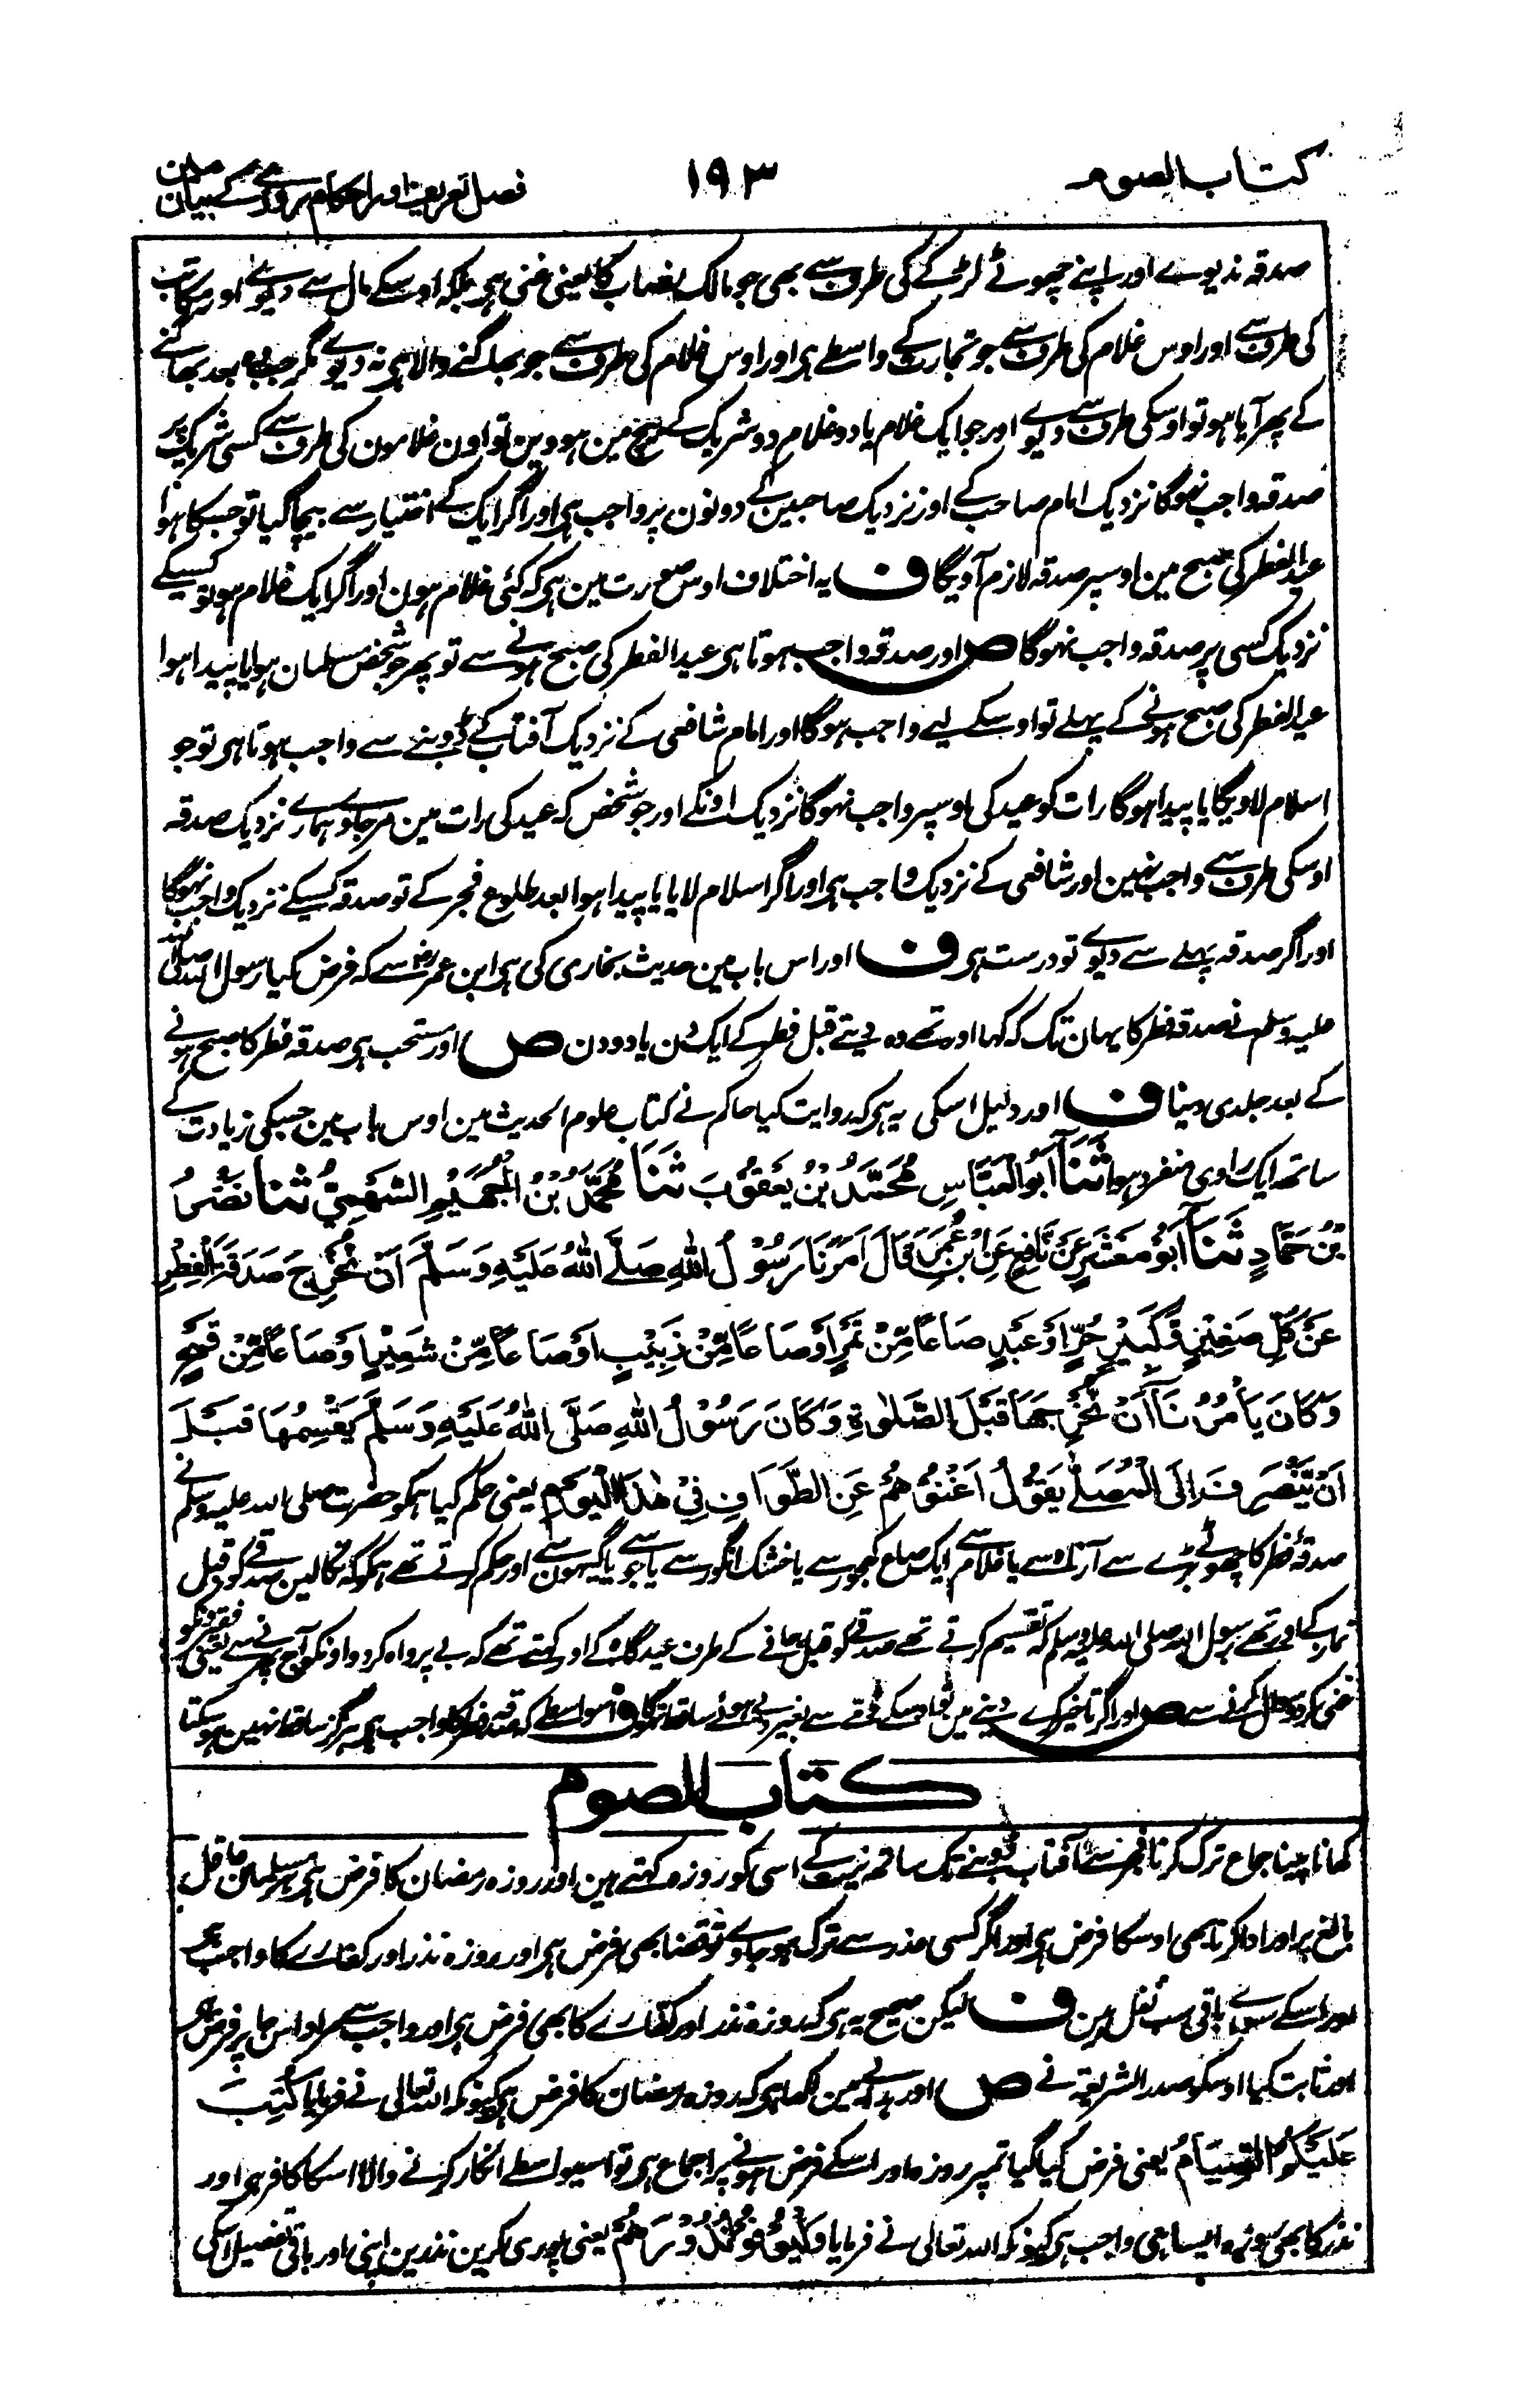 کتاب الصوم
۱۹۳
فصل تعریف اور احکام روزے کے بیان مین
صدقہ ندیوے اور اپنے چھوٹے لڑکے کی طرف سے بھی جو مالک نصاب کا یعنی غنی ہی بلکہ اوسکے مال سے دیوے اور مکاتب
کی طرف سے اور اوس غلام کی طرف سے جو تجارت کے واسطے ہی اور اوس غلام کی طرف سے جو بھاگنے والا ہی نہ دیوے مگر جب بعد بھاگنے
کے پھر آیا ہو تو اوسکی طرف سے دیوے اور جو ایک غلام یا دو غلام دو شریک کے بیچ مین ہووین تو اون غلامون کی طرف سے کسی شریک پر
صدقہ واجب نہوگا نزدیک امام صاحب کے اور نزدیک صاحبین کے دونون پر واجب ہی اور اگر ایک کے اختیار سے بیچا گیا تو جسکا ہوا
عید الفطر کی صبح مین اوسپر صدقہ لازم آویگا ف یہ اختلاف اوس صورت مین ہی کہ کئی غلام ہون اور اگر ایک غلام ہو تو کسیکے
نزدیک کسی پر صدقہ واجب نہوگا ص اور صدقہ واجب ہوتا ہی عید الفطر کی صبح ہونے سے تو پھر جو شخص مسلمان ہوا یا پیدا ہوا
عید الفطر کی صبح ہونے کے پہلے تو اوسکے لیے واجب ہوگا اور امام شافعی کے نزدیک آفتاب کے ڈوبنے سے واجب ہوتا ہی تو جو
اسلام لاویگا یا پیدا ہوگا رات کو عید کی اوسپر واجب نہوگا نزدیک اونکے اور جو شخص کہ عید کی رات مین مرجاوے ہمارے نزدیک صدقہ
اوسکی طرف سے واجب نہین اور شافعی کے نزدیک واجب ہی اور اگر اسلام لایا یا پیدا ہوا بعد طلوع فجر کے تو صدقہ کسیکے نزدیک واجب نہوگا
اور اگر صدقہ پہلے سے دیوے تو درست ہی ف اور اس باب مین حدیث بخاری کی ہی ابن عمر رض سے کہ فرض کیا رسول اللہ صلی اللہ
علیہ وسلم نے صدقہ فطر کا یہان تک کہ کہا اور تھے وہ دیتے قبل فطر کے ایک دن یا دو دن ص اور مستحب ہی صدقہ فطر کا صبح ہونے
کے بعد جلدی دینا ف اور دلیل اسکی یہ ہی کہ روایت کیا حاکم نے کتاب علوم الحدیث مین اوس باب مین جسکی زیادت کے
ساتھ ایک راوی منفرد ہوا ثَنَا اَبُو الْعَبَّاسِ مُحَمَّدُ بْنُ یَعْقُوْبَ ثَنَا مُحَمَّدُ بْنُ الْجَھْمِ السَّھْمِيُّ ثَنَا نَصْرُ
بْنُ حَمَّادٍ ثَنَا اَبُوْ مَعْشَرٍ عَنْ نَّافِعٍ عَنِ ابْنِ عُمَرَ قَالَ اَمَرَنَا رَسُوْلُ اللّٰہِ صَلَّی اللّٰہُ عَلَیْہِ وَسَلَّمَ اَنْ نُّخْرِجَ صَدَقَۃَ الْفِطْرِ
عَنْ کُلِّ صَغِیْرٍ وَّکَبِیْرٍ حُرٍّ اَوْ عَبْدٍ صَاعًا مِّنْ تَمْرٍ اَوْ صَاعًا مِّنْ زَبِیْبٍ اَوْ صَاعًا مِّنْ شَعِیْرٍ اَوْ صَاعًا مِّنْ قَمْحٍ
وَکَانَ یَأْمُرُنَا اَنْ نُّخْرِجَھَا قَبْلَ الصَّلٰوۃِ وَکَانَ رَسُوْلُ اللّٰہِ صَلَّی اللّٰہُ عَلَیْہِ وَسَلَّمَ یَقْسِمُھَا قَبْلَ
اَنْ یَّنْصَرِفَ اِلَی الْمُصَلّٰی یَقُوْلُ اَغْنُوْھُمْ عَنِ الطَّوَافِ فِيْ ھٰذَا الْیَوْمِ یعنی حکم کیا ہمکو حضرت صلی اللہ علیہ وسلم نے
صدقۂ فطر کا چھوٹے بڑے سے آزاد سے یا غلام سے ایک صاع کھجور سے یا خشک انگور سے یا جو سے یا گیہون سے اور حکم کرتے تھے ہمکو کہ نکالین صدقے کو قبل
نماز کے اور تھے رسول اللہ صلی اللہ علیہ وسلم کہ تقسیم کرتے تھے صدقے کو قبل جانے کے طرف عیدگاہ کے اور کہتے تھے کہ بے پرواہ کردو اونکو آج پھرنے سے یعنی فقیرونکو
غنی کردو سوال کرنے سے ص اور اگر تاخیر کرے دینے مین تو اوسکے ذمے سے بغیر دیے ہوئے ساقط نہوگا ف اسواسطے کہ صدقہ فطر کا واجب ہی ہرگز ساقط نہین ہوسکتا
کتاب الصوم
کھانا پینا جماع ترک کرنا فجر سے آفتاب ڈوبنے تک ساتھ نیت کے اسی کو روزہ کہتے ہین اور روزہ رمضان کا فرض ہی ہر مسلمان عاقل
بالغ پر اور ادا کرنا بھی اوسکا فرض ہی اور اگر کسی عذر سے ترک ہو جاوے تو قضا بھی فرض ہی اور روزہ نذر اور کفارے کا واجب ہی
اور اسکے سوا باقی سب نفل ہین ف لیکن صحیح یہ ہی کہ روزہ نذر اور کفارے کا بھی فرض ہی اور واجب سے مراد اس جا پر فرض ہی
اور ثابت کیا اوسکو صدر الشریعۃ نے ص اور ہدایہ مین لکھا ہی کہ روزہ رمضان کا فرض ہی کیونکہ اللہ تعالی نے فرمایا کُتِبَ
عَلَیْکُمُ الصِّیَامُ یعنی فرض کیا گیا تمپر روزہ اور اسکے فرض ہونے پر اجماع ہی تو اسیواسطے انکار کرنے والا اسکا کافر ہی اور
نذر کا بھی روزہ ایسا ہی واجب ہی کیونکہ اللہ تعالی نے فرمایا وَلْیُوْفُوْا نُذُوْرَھُمْ یعنی پوری کرین نذرین اپنی اور باقی تفصیل اسکی